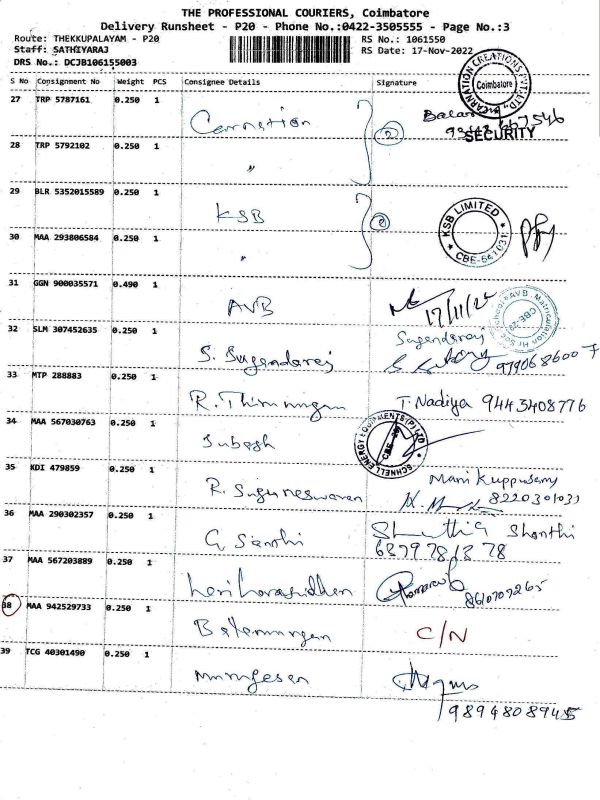 THE PROFESSIONAL COURIERS, Coimbatore
Delivery Runsheet - P20 - Phone No.:0422-3505555 - Page No.:3
Route: THEKKUPALAYAM - P20 RS No.: 1061550
Staff: SATHIYARAJ RS Date: 17-Nov-2022
DRS No.: DCJB106155003
S No Consignment No Weight PCS Consignee Details Signature
27 TRP 5787161 0.250 1 Carnation 2 Balan
SECURITY
Coimbatore
28 TRP 5792102 0.250 1 "
29 BLR 5352015589 0.250 1 KSB 2
KSB LIMITED CBE-641031
30 MAA 293806584 0.250 1 "
31 GGN 900035571 0.490 1 AVB 17/11/22
32 SLM 307452635 0.250 1 S. Sugendaraj Sugendaraj
9790686007
33 MTP 288883 0.250 1 R. Thirumurugan T. Nadiya 9443408776
34 MAA 567030763 0.250 1 Subash
SCHNELL ENERGY EQUIPMENTS (P) LTD
35 KDI 479859 0.250 1 R. Suguneswaran Mani Kuppusamy
36 MAA 290302357 0.250 1 G. Shanthi Shanthi
37 MAA 567203889 0.250 1
8610709265
38 MAA 942529733 0.250 1 C/N
39 TCG 40301490 0.250 1 Murugesan
9894808945